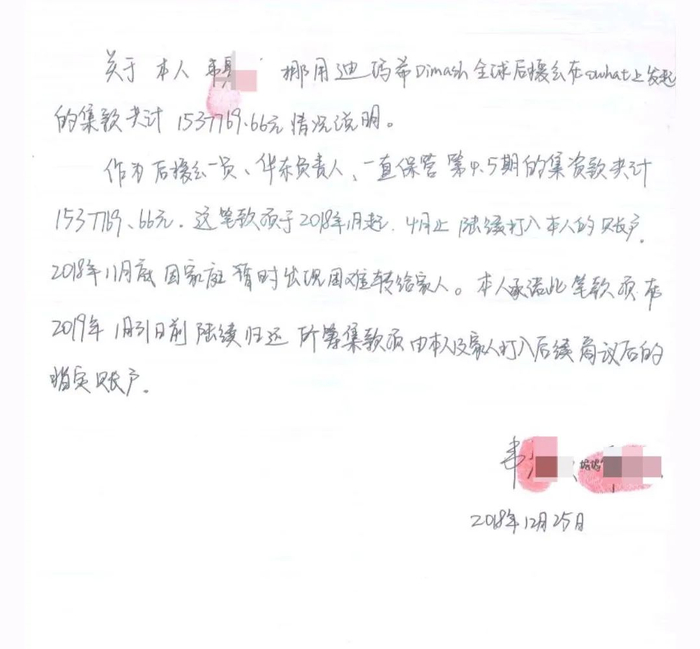 关于 本人 韦 挪用迪玛希Dimash全球后援会在owhat上发起
的集款共计 1537769.66元 情况说明。
作为后援会一员、华东负责人、一直保管第4.5期的集资款共计
1537769.66元. 这笔款项于2018年1月起.4月止 陆续打入本人的账户.
2018年11月底 因家庭 暂时出现困难转给家人。本人承诺此笔款项在
2019年1月31日前 陆续归还 所筹集款项由本人及家人打入后续商议后的
指定账户.
韦
2018年12月25日